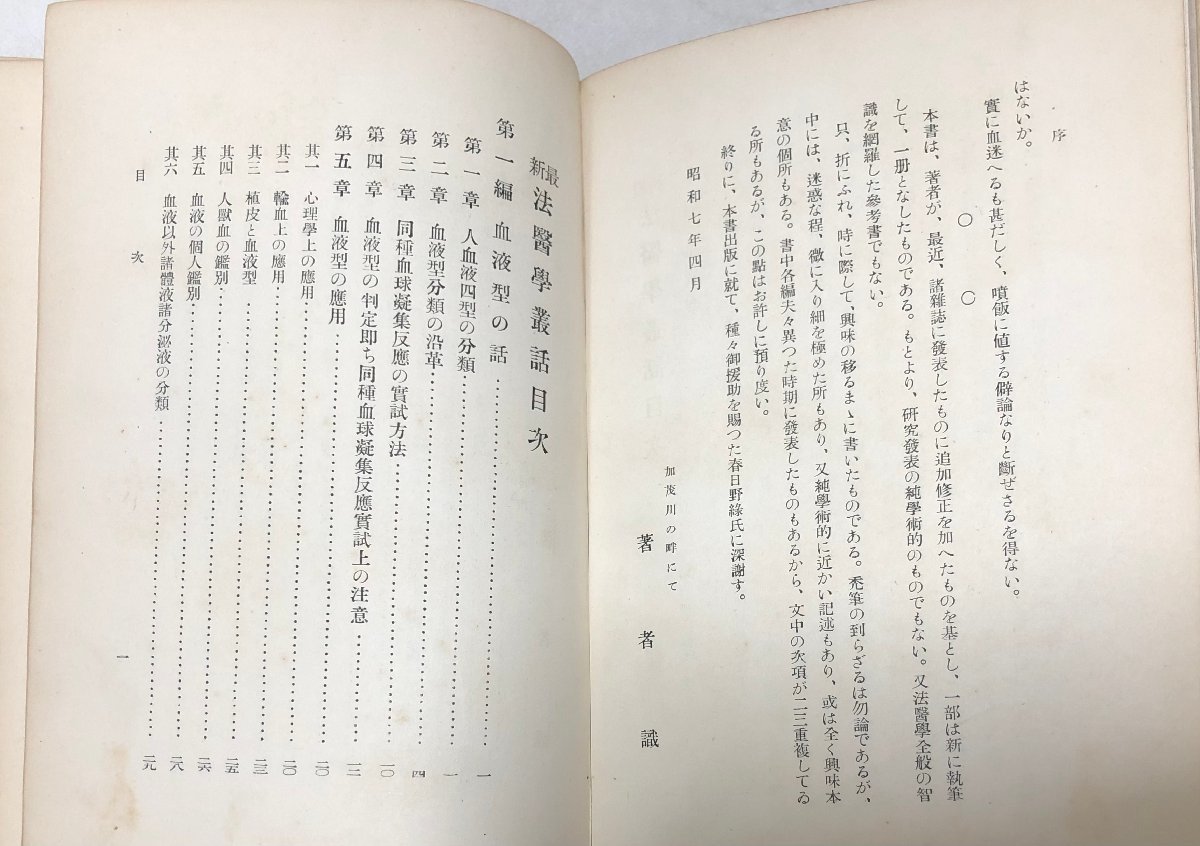 序
はないか。
實に血迷へるも甚だしく、噴飯に値する僻論なりと斷ぜさるを得ない。
○ ○
本書は、著者が、最近、諸雜誌に發表したものに追加修正を加へたものを基とし、一部は新に執筆
して、一册となしたものである。もとより、研究發表の純學術的のものでもない。又法醫學全般の智
識を網羅した參考書でもない。
只、折にふれ、時に際して、興味の移るまゝに書いたものである。禿筆の到らざるは勿論であるが、
中には、迷惑な程、微に入り細を極めた所もあり、又純學術的に近かい記述もあり、或は全く興味本
意の個所もある。書中各編夫々異つた時期に發表したものもあるから、文中の次項が二三重複してゐ
る所もあるが、この點はお許しに預り度い。
終りに、本書出版に就て、種々御援助を賜つた春日野緣氏に深謝す。
昭和七年四月
加茂川の畔にて
著者識
最新法醫學叢話目次
第一編 血液型の話……一
第一章 人血液四型の分類……一
第二章 血液型分類の沿革……四
第三章 同種血球凝集反應の實試方法……一〇
第四章 血液型の判定卽ち同種血球凝集反應實試上の注意……一三
第五章 血液型の應用……二〇
其一 心理學上の應用……二〇
其二 輸血上の應用……二三
其三 植皮と血液型……二五
其四 人獸血の鑑別……二六
其五 血液の個人鑑別……二八
其六 血液以外諸體液諸分泌液の分類……二九
目次
一